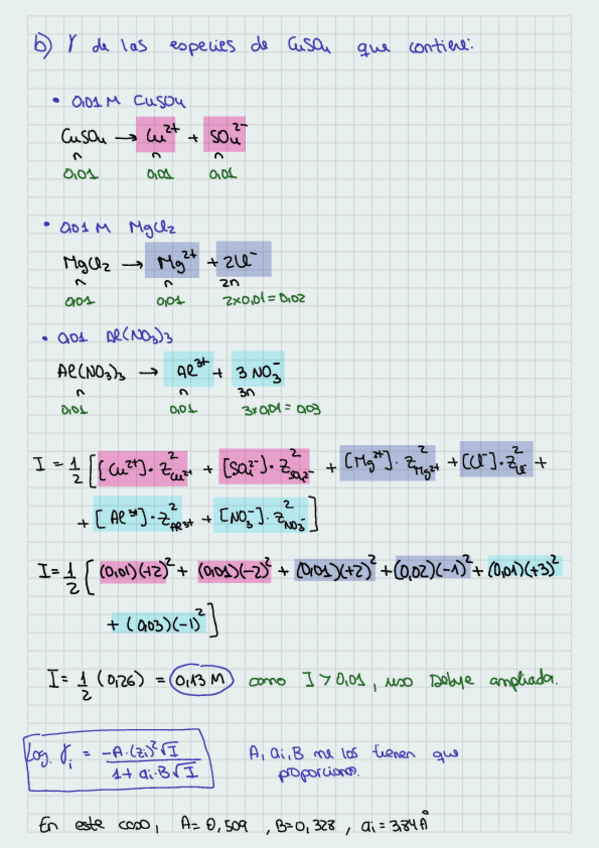 b) γ de las especies de CuSO4 que contiene:
• 0,01 M CuSO4
CuSO4 → Cu²⁺ + SO4²⁻
n n n
0,01 0,01 0,01
• 0,01 M MgCl2
MgCl2 → Mg²⁺ + 2Cl⁻
n n 2n
0,01 0,01 2x0,01=0,02
• 0,01 Al(NO3)3
Al(NO3)3 → Al³⁺ + 3 NO3⁻
n n 3n
0,01 0,01 3x0,01 = 0,03
I = 1/2 [[Cu²⁺]·Z²Cu²⁺ + [SO4²⁻]·Z²SO4²⁻ + [Mg²⁺]·Z²Mg²⁺ + [Cl⁻]·Z²Cl⁻ +
+ [Al³⁺]·Z²Al³⁺ + [NO3⁻]·Z²NO3⁻]
I = 1/2 [(0,01)(+2)² + (0,01)(-2)² + (0,01)(+2)² + (0,02)(-1)² + (0,01)(+3)²
+ (0,03)(-1)²]
I = 1/2 (0,26) = 0,13 M como I > 0,01, uso Debye ampliada.
log γi = -A·(zi)²√I / 1 + ai·B√I A, ai, B me los tienen que
proporcionar.
En este caso, A = 0,509, B = 0,328, ai = 3,84 Å